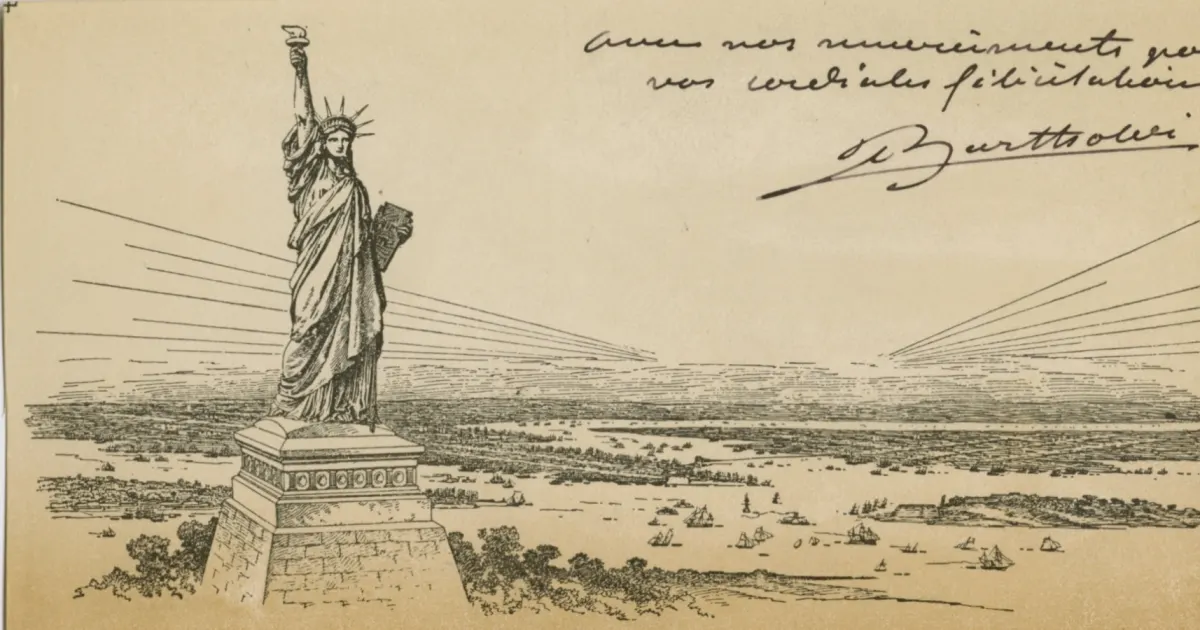 avec nos remerciements po
vos cordiales félicitation
Bartholdi